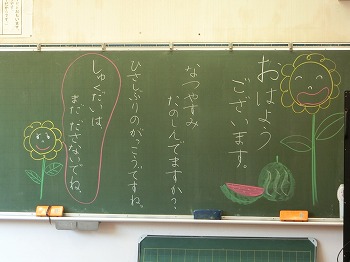 おはよう
ございます。
なつやすみ
たのしんでますか?
ひさしぶりのがっこうですね。
しゅくだいは、
まだださないでね。